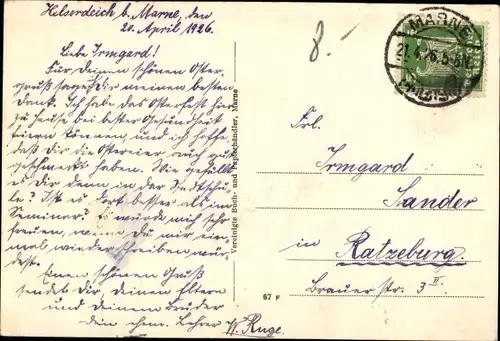 Helserdeich b. Marne, den
20. April 1926.
Liebe Irmgard!
Für Deinen schönen Oster-
gruß sage Dir meinen besten
Dank. Ich habe das Osterfest hier
zu Hause bei bester Gesundheit
feiern können und ich hoffe
daß Dir die Ostereier auch gut
geschmeckt haben. Wie gefällt
es Dir denn in der Stadtschu-
le? Ist es dort besser als im
Seminar? Es würde mich sehr
freuen, wenn Du mir ein-
mal wieder schreiben wür-
dest.
Einen schönen Gruß
sendet Dir, Deinen Eltern
und Deinem Bruder
Dein ehem. Lehrer W. Ruge.
Vereinigte Buch- und Papierhändler, Marne
8.-
MARNE
21.4.26.5-6N
Frl.
Irmgard
Sander
in Ratzeburg.
Brauerstr. 3 II.
67 F